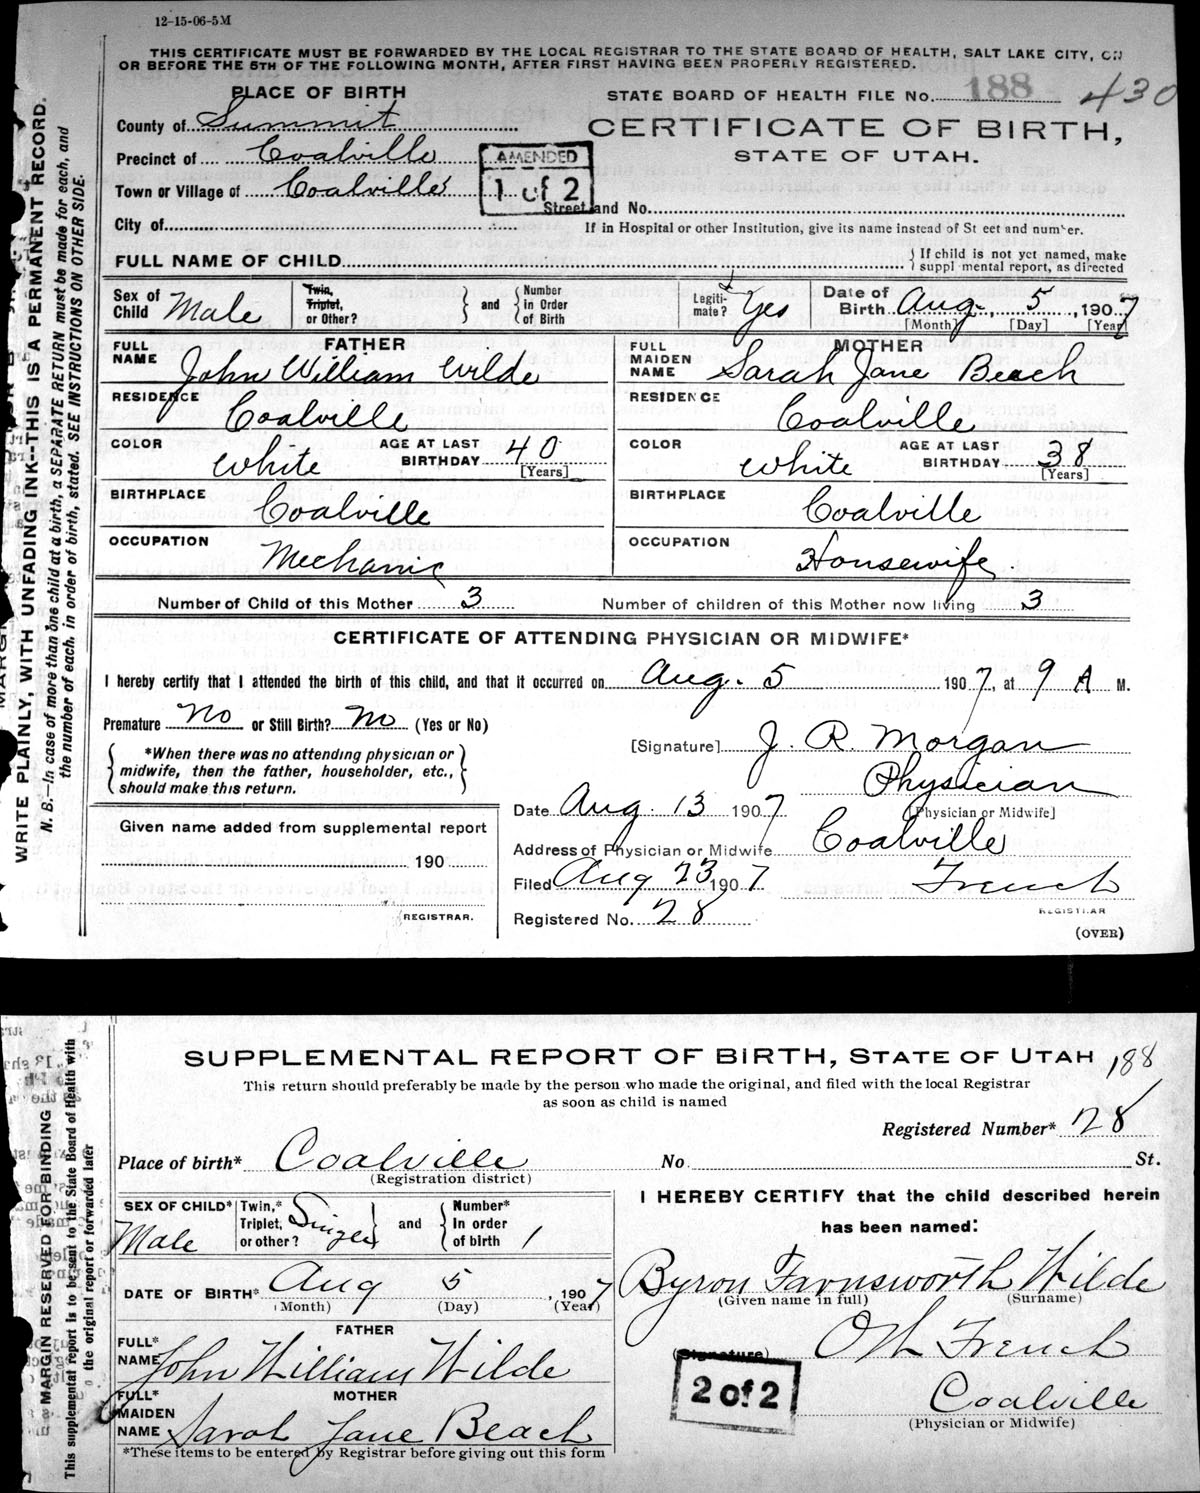 12-15-06-5M
THIS CERTIFICATE MUST BE FORWARDED BY THE LOCAL REGISTRAR TO THE STATE BOARD OF HEALTH, SALT LAKE CITY, ON
OR BEFORE THE 5TH OF THE FOLLOWING MONTH, AFTER FIRST HAVING BEEN PROPERLY REGISTERED.
PLACE OF BIRTH
STATE BOARD OF HEALTH FILE No. 188 430
County of Summit
CERTIFICATE OF BIRTH,
STATE OF UTAH.
Precinct of Coalville
AMENDED
1 of 2
Town or Village of Coalville
Street and No.
City of
If in Hospital or other Institution, give its name instead of Street and number.
FULL NAME OF CHILD
If child is not yet named, make
supplemental report, as directed
Sex of Child Male
Twin, Triplet, or Other? and Number in Order of Birth
Legitimate? Yes
Date of Birth Aug. 5, 1907
[Month] [Day] [Year]
FATHER
FULL NAME John William Wilde
RESIDENCE Coalville
COLOR White AGE AT LAST BIRTHDAY 40 [Years]
BIRTHPLACE Coalville
OCCUPATION Mechanic
MOTHER
FULL MAIDEN NAME Sarah Jane Beach
RESIDENCE Coalville
COLOR White AGE AT LAST BIRTHDAY 38 [Years]
BIRTHPLACE Coalville
OCCUPATION Housewife
Number of Child of this Mother 3 Number of children of this Mother now living 3
CERTIFICATE OF ATTENDING PHYSICIAN OR MIDWIFE*
I hereby certify that I attended the birth of this child, and that it occurred on Aug. 5 1907, at 9 A M.
Premature No or Still Birth? No (Yes or No)
*When there was no attending physician or
midwife, then the father, householder, etc.,
should make this return.
[Signature] J. R. Morgan
Physician
[Physician or Midwife]
Date Aug. 13 1907
Address of Physician or Midwife Coalville
Filed Aug 23 1907 French
REGISTRAR
Registered No. 28
(OVER)
Given name added from supplemental report
190
REGISTRAR.
WRITE PLAINLY, WITH UNFADING INK--THIS IS A PERMANENT RECORD.
N. B.—In case of more than one child at a birth, a SEPARATE RETURN must be made for each, and
the number of each, in order of birth, stated. SEE INSTRUCTIONS ON OTHER SIDE.
SUPPLEMENTAL REPORT OF BIRTH, STATE OF UTAH 188
This return should preferably be made by the person who made the original, and filed with the local Registrar
as soon as child is named
Registered Number* 28
Place of birth* Coalville No St.
(Registration district)
SEX OF CHILD* Male
Twin,* Triplet, or other? Single and Number* In order of birth 1
DATE OF BIRTH* Aug 5, 1907
(Month) (Day) (Year)
FATHER
FULL* NAME John William Wilde
MOTHER
FULL* MAIDEN NAME Sarah Jane Beach
*These items to be entered by Registrar before giving out this form
I HEREBY CERTIFY that the child described herein
has been named:
Byron Farnsworth Wilde
(Given name in full) (Surname)
(Signature) O H French
2 of 2
Coalville
(Physician or Midwife)
MARGIN RESERVED FOR BINDING
This supplemental report is to be sent to the State Board of Health with
the original report or forwarded later